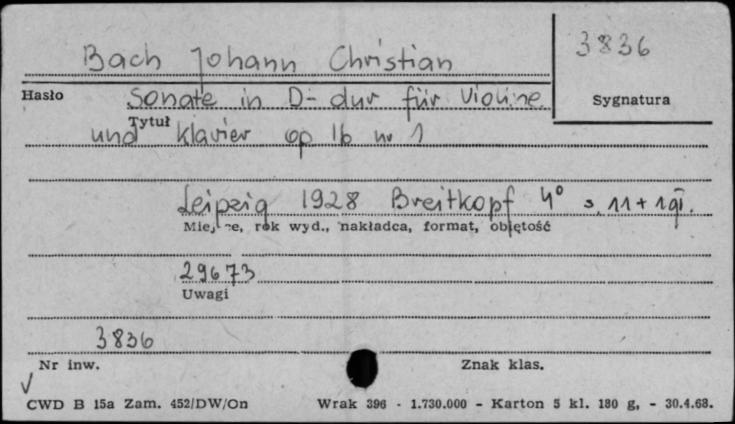 Bach Johann Christian
3836
Hasło
Sonate in D-dur für Violine
Sygnatura
Tytuł
und Klavier op 16 nr 1
Leipzig 1928 Breitkopf 4° s. 11 + 1 gł.
Miejsce, rok wyd., nakładca, format, objętość
29673
Uwagi
3836
Nr inw.
Znak klas.
CWD B 15a Zam. 452/DW/On Wrak 396 - 1.730.000 - Karton 5 kl. 180 g, - 30.4.68.